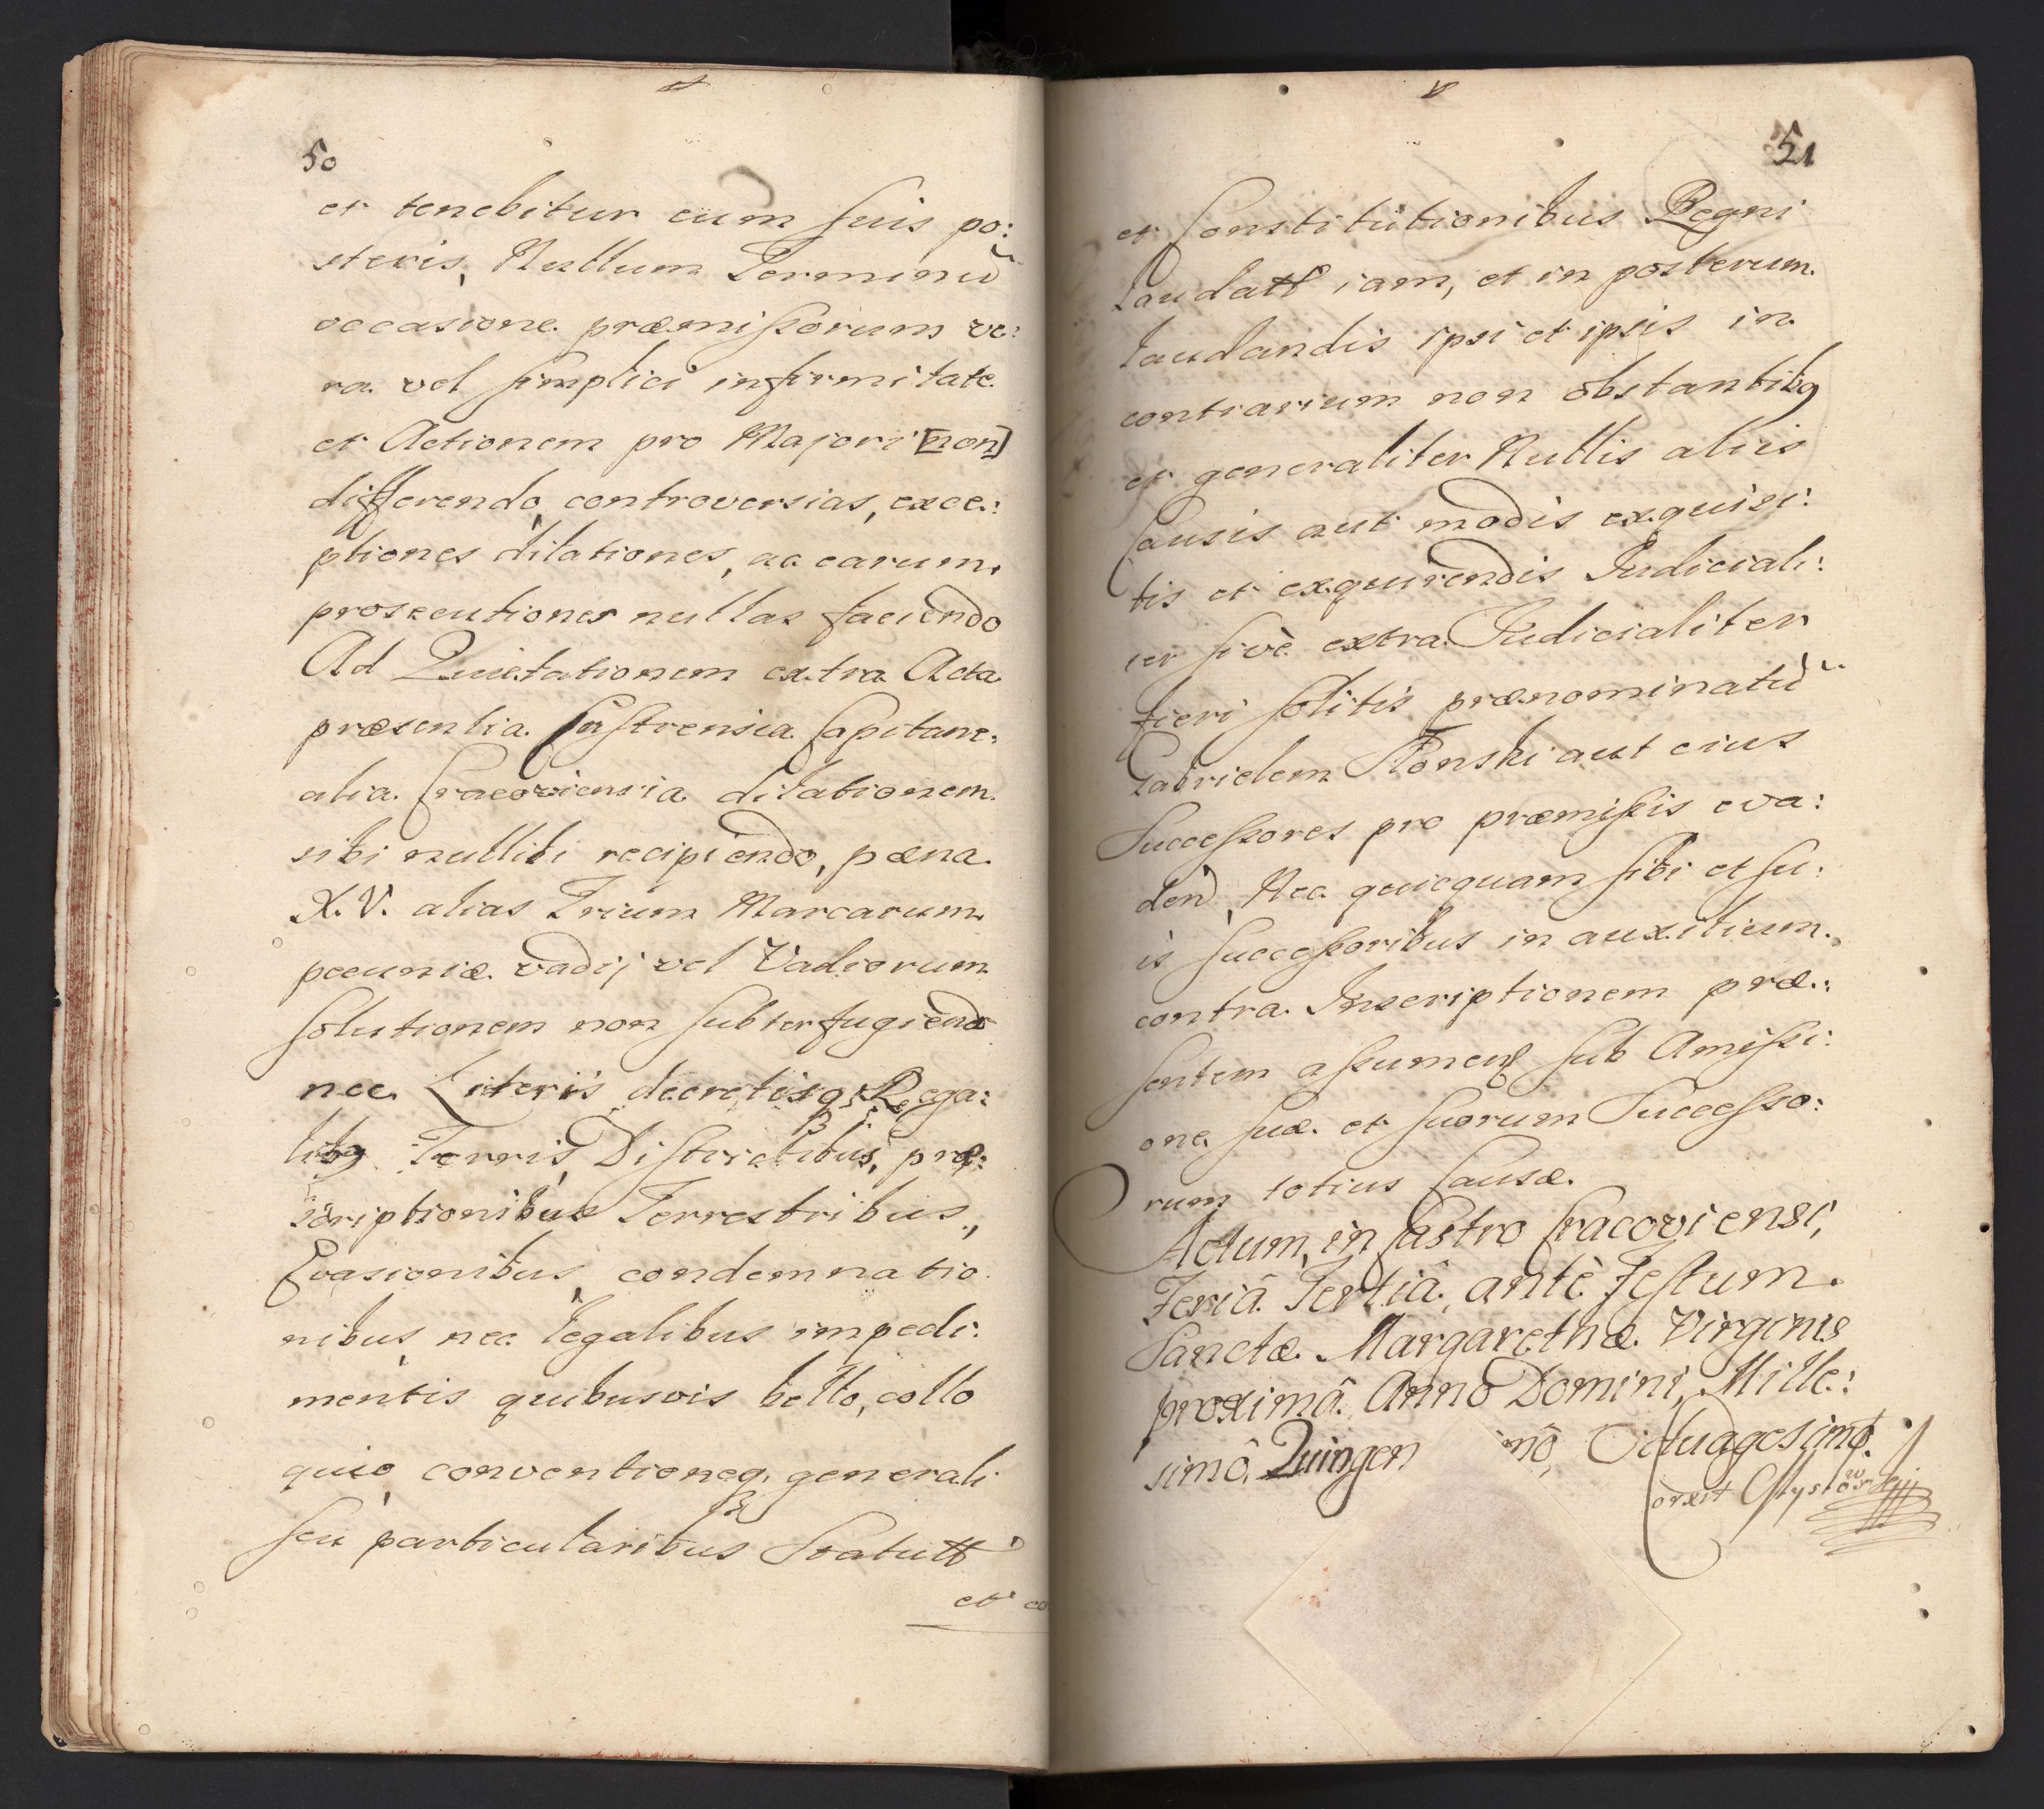 50
et tenebitur cum suis po:
steris, Nullum Terminũ
occasione præmissorum ve:
ra vel simplici infirmitate
et Actionem pro Majori [non]
differendo, controversias, exce:
ptiones dilationes, ac earum
prosecutiones nullas faciendo
Ad Quietationem extra Acta
præsentia Castrensia Capitane:
alia Cracoviensia dilationem
sibi nullibi recipiendo, pæna
X.V. alias Trium Marcarum
pecuniæ vadij vel Vadiorum
solutionem non subterfugiendo
nec Literis decretisq, Rega:
libq Terris, Districtibus, præ:
scriptionibus Terrestribus,
Evasionibus, condemnatio
nibus, nec legalibus impedi:
mentis quibusvis bello, collo
quio, conventioneq, generali
seu particularibus Statutt
et co
51
et Constitutionibus Regni
laudatt iam, et in posterum
laudandis ipsi et ipsis in
contrarium non obstantibq
et generaliter Nullis aliis
Causis aut modis exquisi:
tis et exquirendis Iudiciali:
ter sivè extra Iudicialiter
fieri solitis prænominatũ
Gabrielem Płonski aut eius
Successores pro præmissis eva:
dend, Nec quicquam sibi et su:
is successoribus in auxilium
contra Inscriptionem præ:
sentem assumend sub Amissi:
one suæ et suorum Successo:
rum totius Causæ.
Actum, in Castro Cracoviensi,
Feriâ Tertiâ, antè Festum
Sanctæ Margarethæ Virginis
proximâ Anno Domini, Mille:
simô, Quingen mô, Octuagesimô.